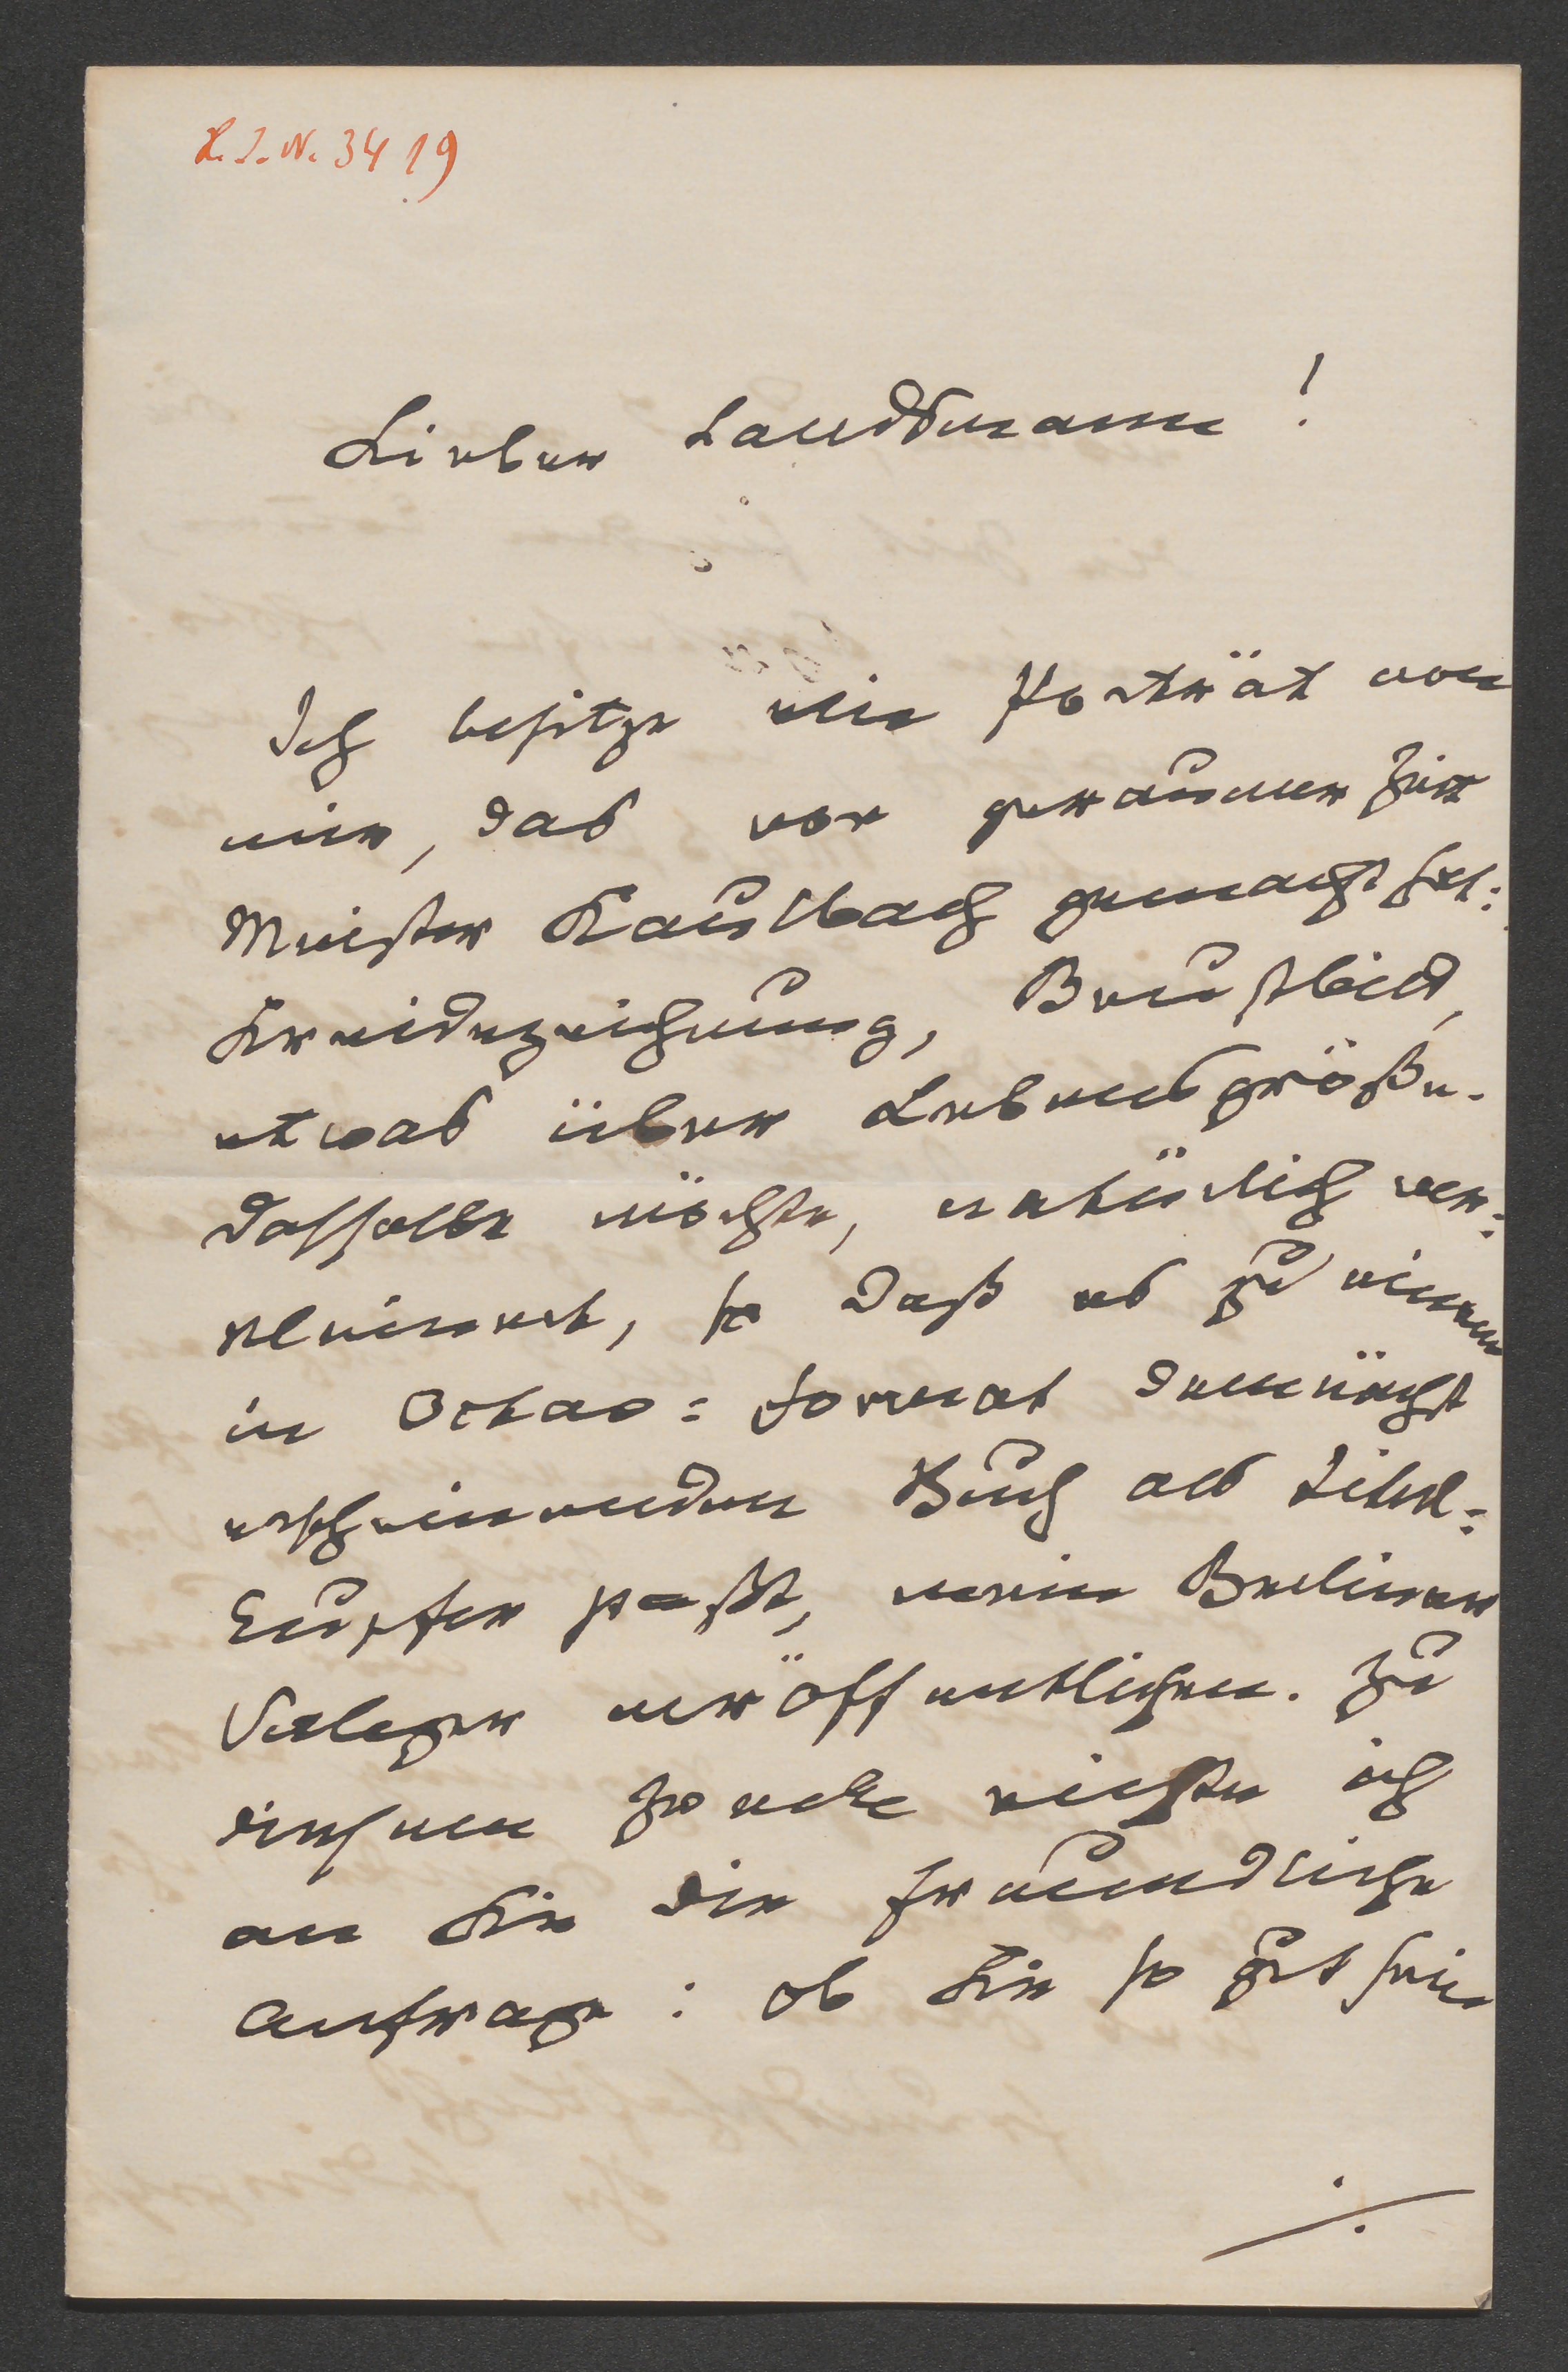 H. I. N. 3419
Lieber Landsmann!
Ich besitze ein Porträt von
mir, das vor geraumer Zeit
Meister Kaulbach gemacht hat:
Kreidezeichnung, Brustbild,
etwas über Lebensgröße.
Dasselbe möchte, natürlich ver=
kleinert, so daß es zu einem
in Octav=Format demnächst
erscheinenden Buch als Titel=
Kupfer paßt, mein Berliner
Verleger veröffentlichen. Zu
diesem Zwecke richte ich
an Sie die freundliche
Anfrage: ob Sie so gut sein
./.